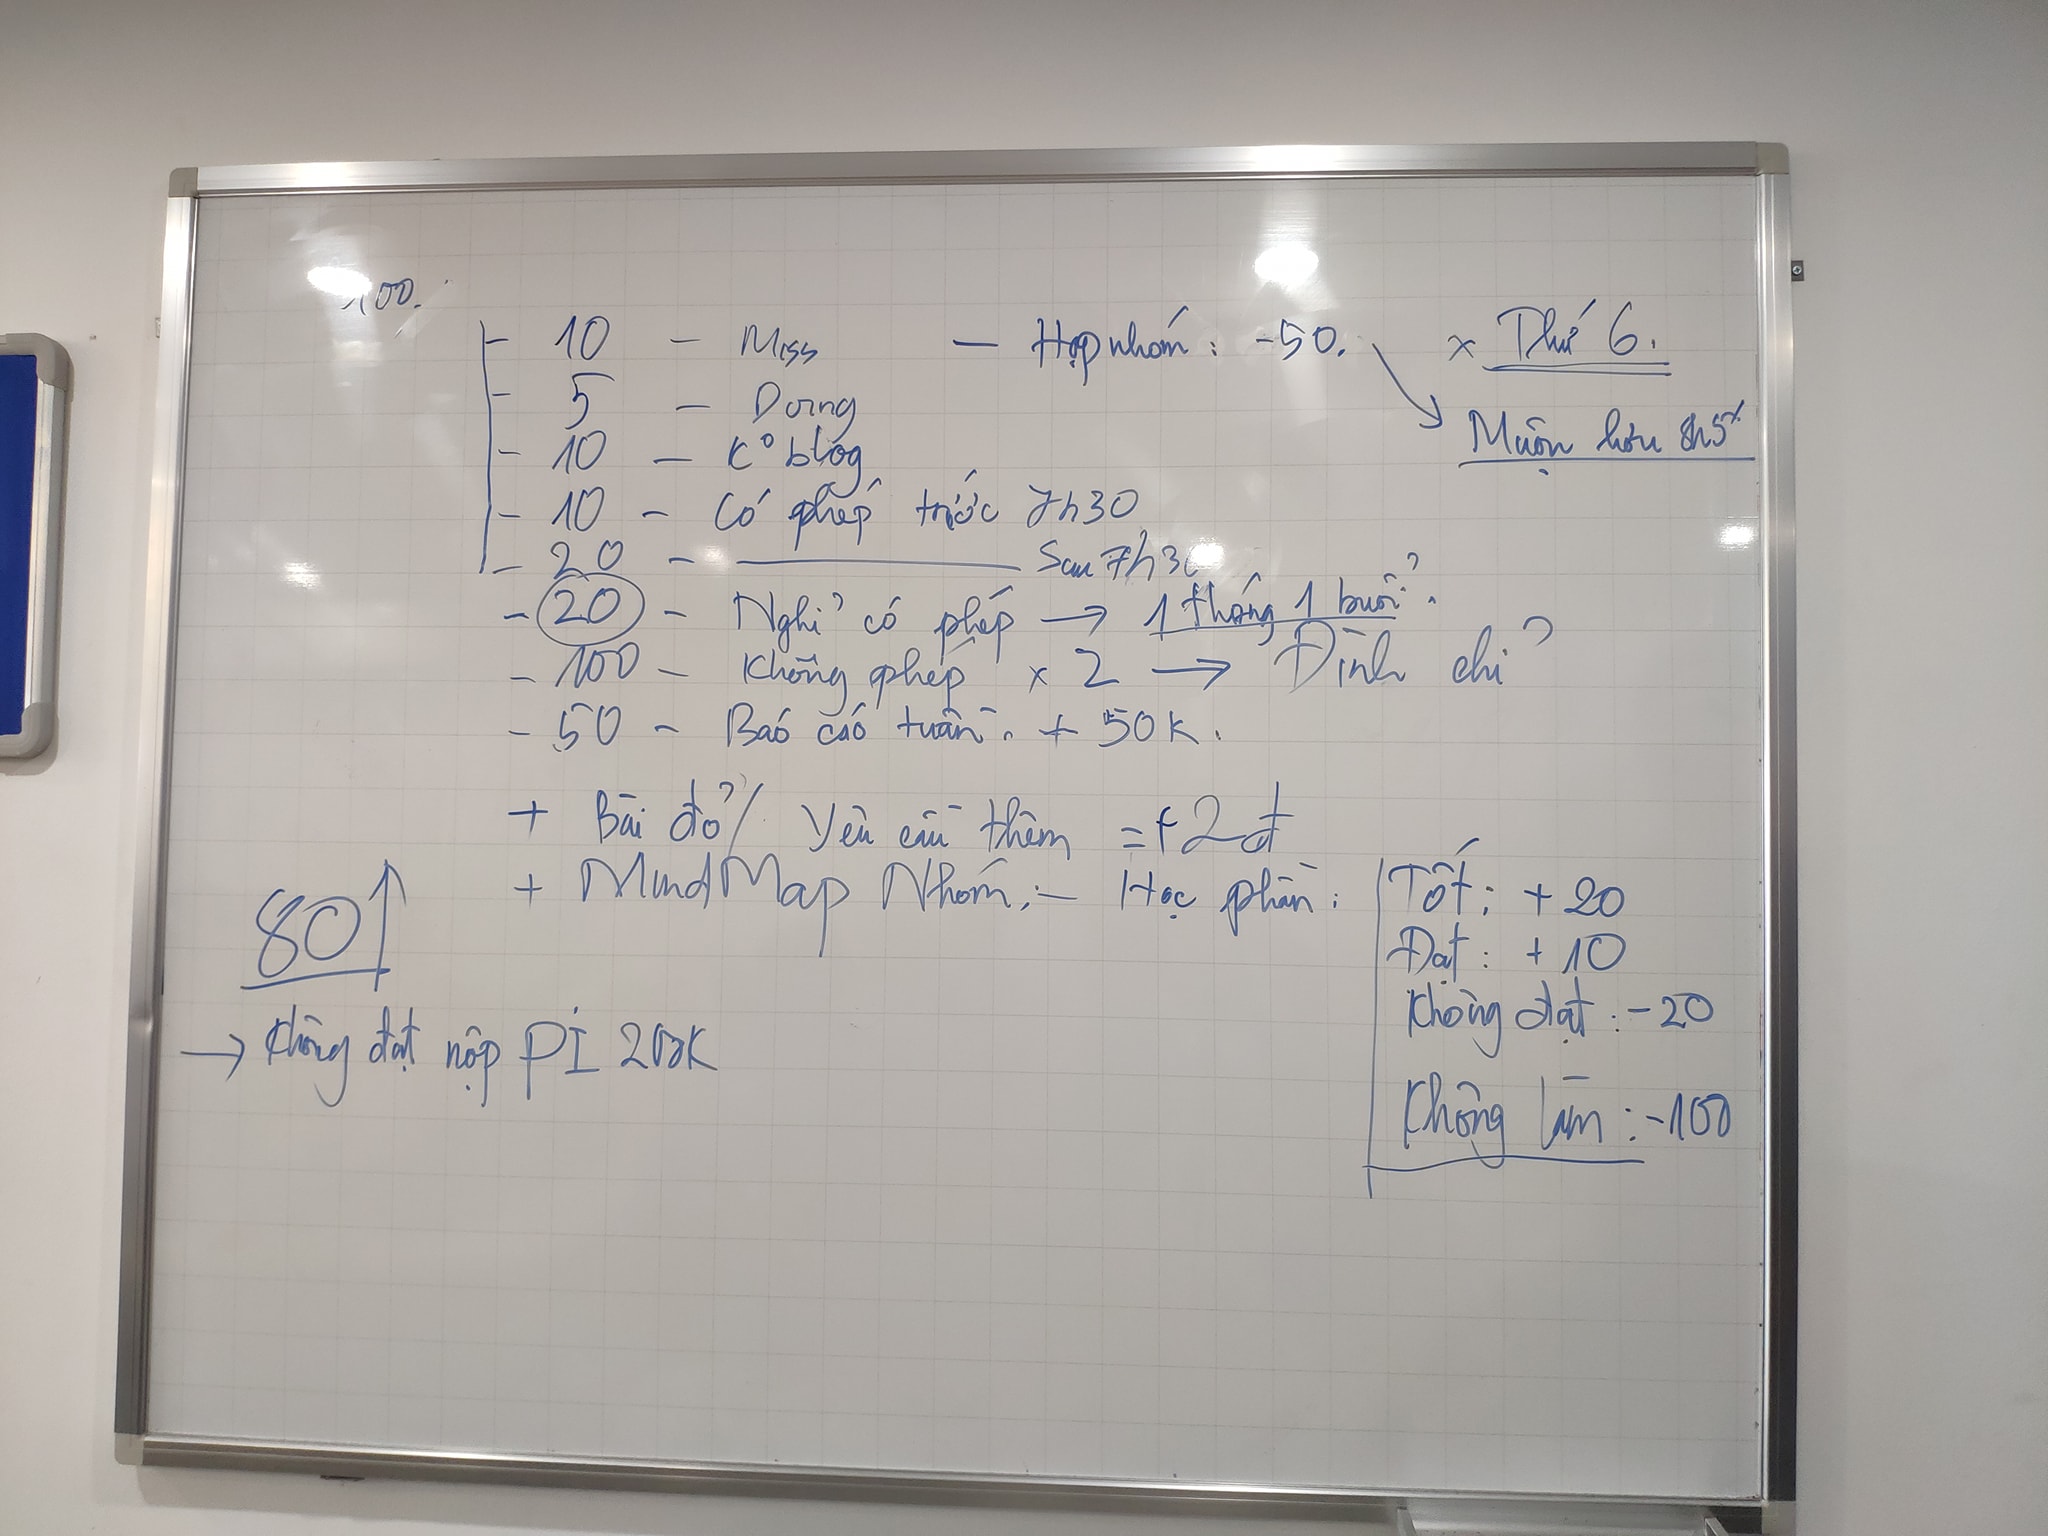 100.
- 10 - Miss - Họp nhóm: -50. x Thứ 6.
- 5 - Doing
Muộn hơn 8h5'
- 10 - K° blog
- 10 - Có phép trước 7h30
- 20 - Sau 7h30
- 20 - Nghỉ có phép → 1 tháng 1 buổi.
- 100 - Không phép x 2 → Đình chỉ
- 50 - Báo cáo tuần. + 50K.
+ Bài đỏ / Yêu cầu thêm = +2đ
+ MindMap Nhóm: - Học phần:
Tốt: + 20
Đạt: + 10
Không đạt: -20
Không làm: -100
80↑
→ Không đạt nộp PI 200K